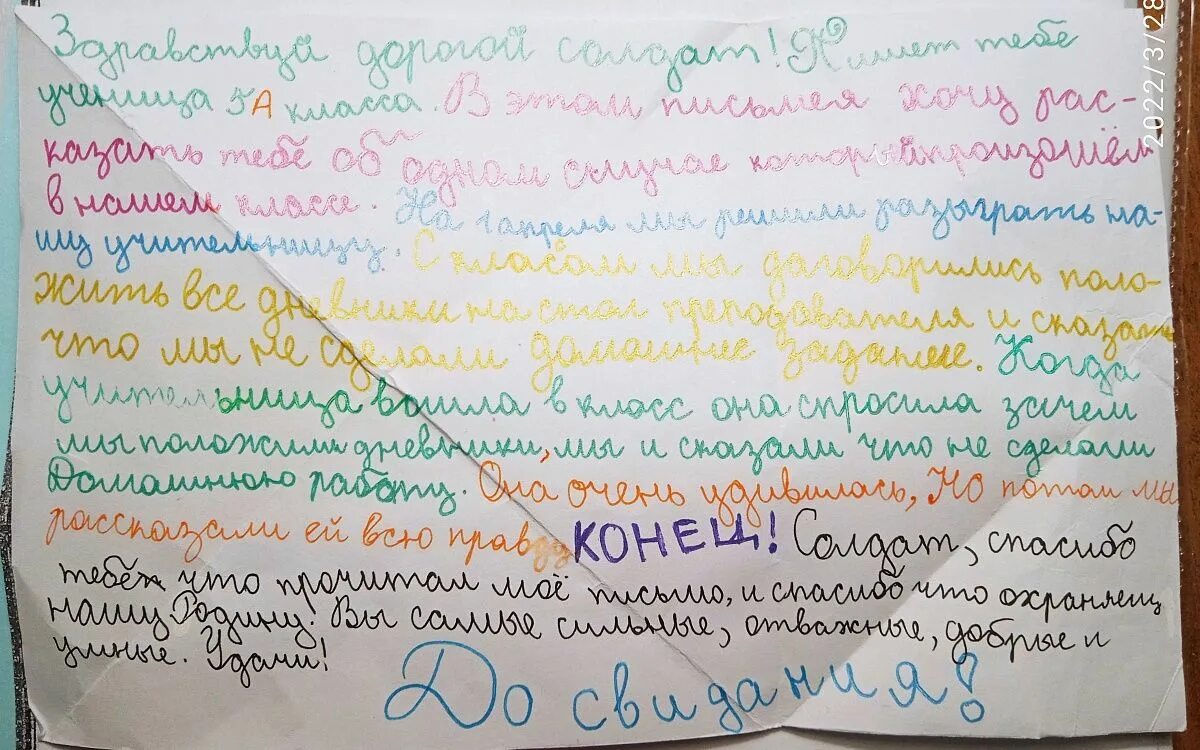 Здравствуй дорогой солдат! Пишет тебе
ученица 5А класса. В этом письмея хочу рас-
казать тебе об одном случае который произошём
в нашем классе. На 1 апреля мы решили разыграть на-
шу учительницу. С класом мы даговорились поло-
жить все дневники на стол преподователя и сказать
что мы не сделали домашние задание. Когда
учительница вошла в класс она спросила зачем
мы положили дневники, мы и сказали что не сделали
Домашнюю работу. Она очень удивилась, Но потом мы
рассказали ей всю правду КОНЕЦ! Солдат, спасибо
тебе что прочитал моё письмо, и спасибо что охраняещ
нашу Родину! Вы самые сильные, отважные, добрые и
умные. Удачи!
До свидания!
2022/3/28